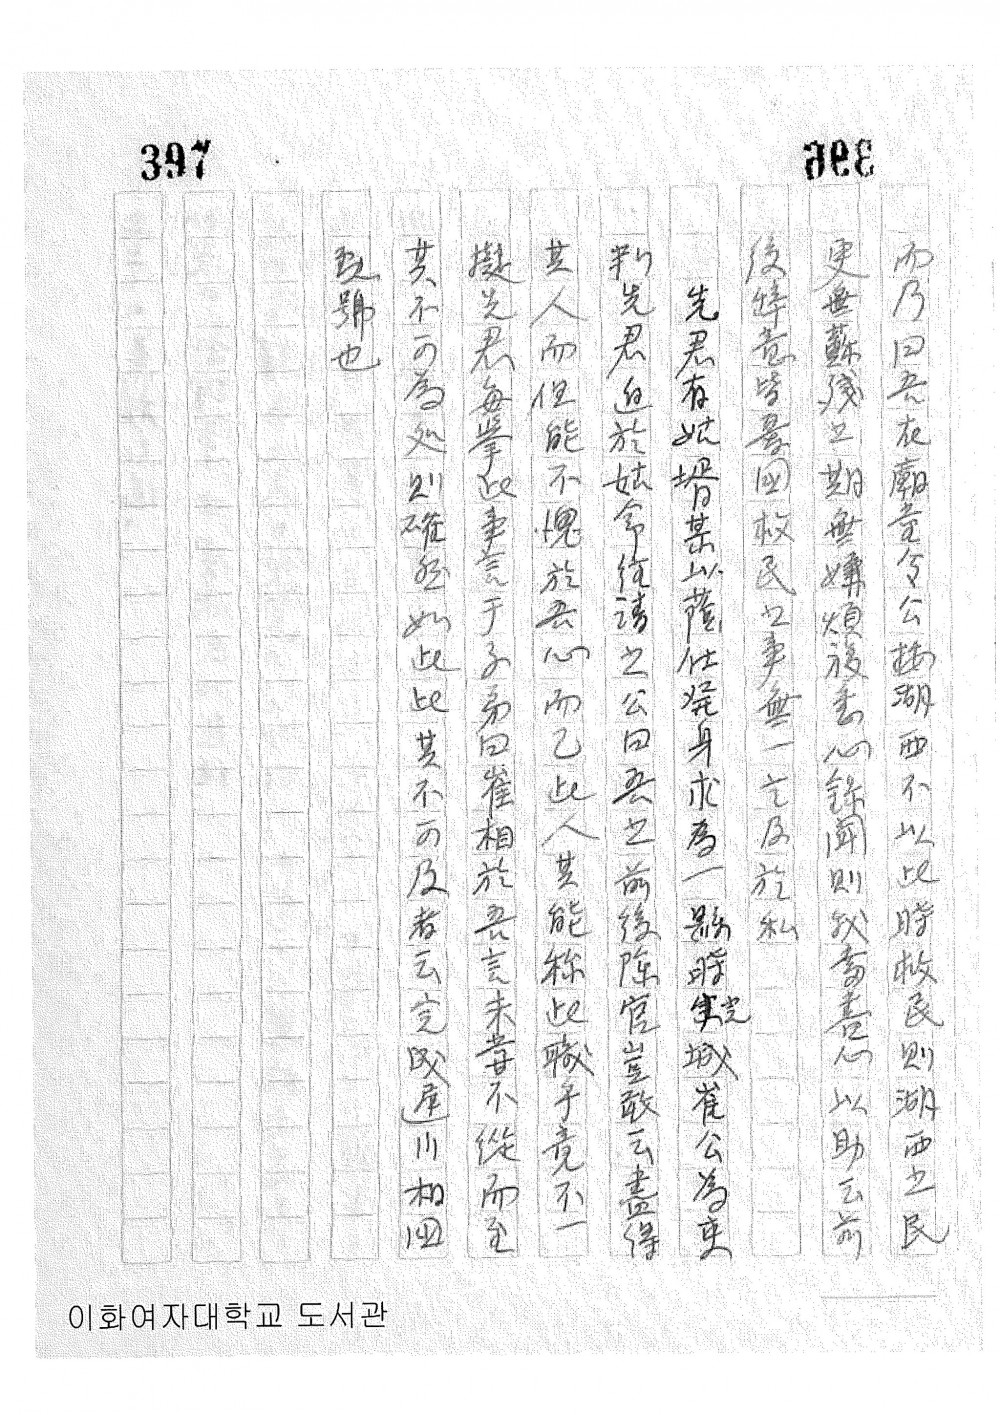 397
396
而乃曰吾在廟堂令公按湖西不以此時救民則湖西之民
更無蘇殘之期無嫌煩複悉心錄聞則我當盡心以助云前
後緯意皆憂國救民之事無一言及於私
先君有姑壻某以蔭仕發身求爲一縣時完城崔公爲吏
判先君迫於姑命往請之公曰吾之前後除官豈敢云盡得
其人而但能不愧於吾心而已此人其能稱此職乎竟不一
擬先君每擧此事言于子弟曰崔相於吾言未嘗不從而至
其不可爲處則確然如此此其不可及者云完城遲川相國
勳號也
이화여자대학교 도서관